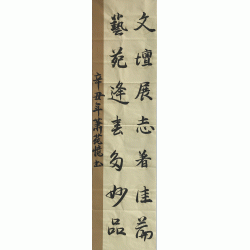 文壇展志著佳篇
藝苑逢春多妙品
辛丑年蕭花悅书